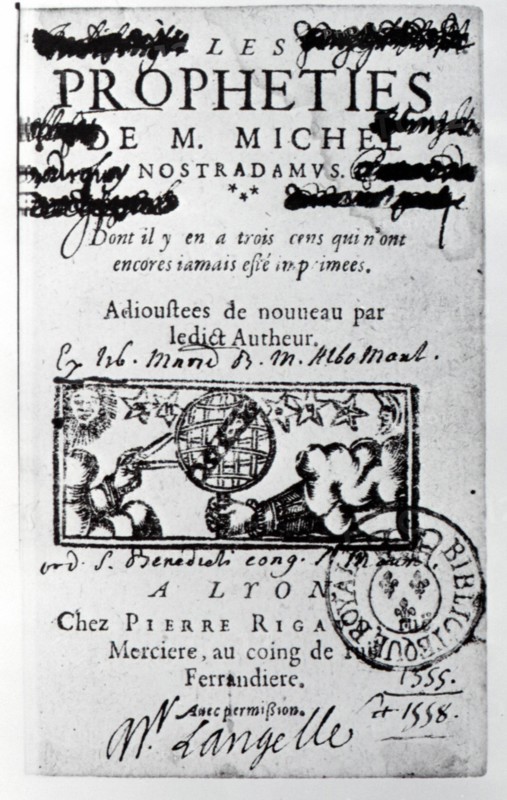 LES
PROPHETIES
DE M. MICHEL
NOSTRADAMVS.
Dont il y en a trois cens qui n'ont
encores iamais esté imprimees.
Adioustees de nouueau par
ledict Autheur.
Ex lib. B. M. Albo
ord. S. Benedicti cong. S.
A LYON
Chez PIERRE RIGA
Merciere, au coing de ruë
Ferrandiere.
Auec permißion.
1555.
et 1558.
Langelle
BIBLIOTHEQUE ROYALE